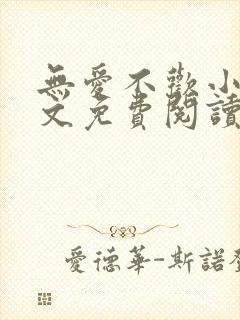 無愛不歡小
文免費閱讀
愛德華-斯諾登